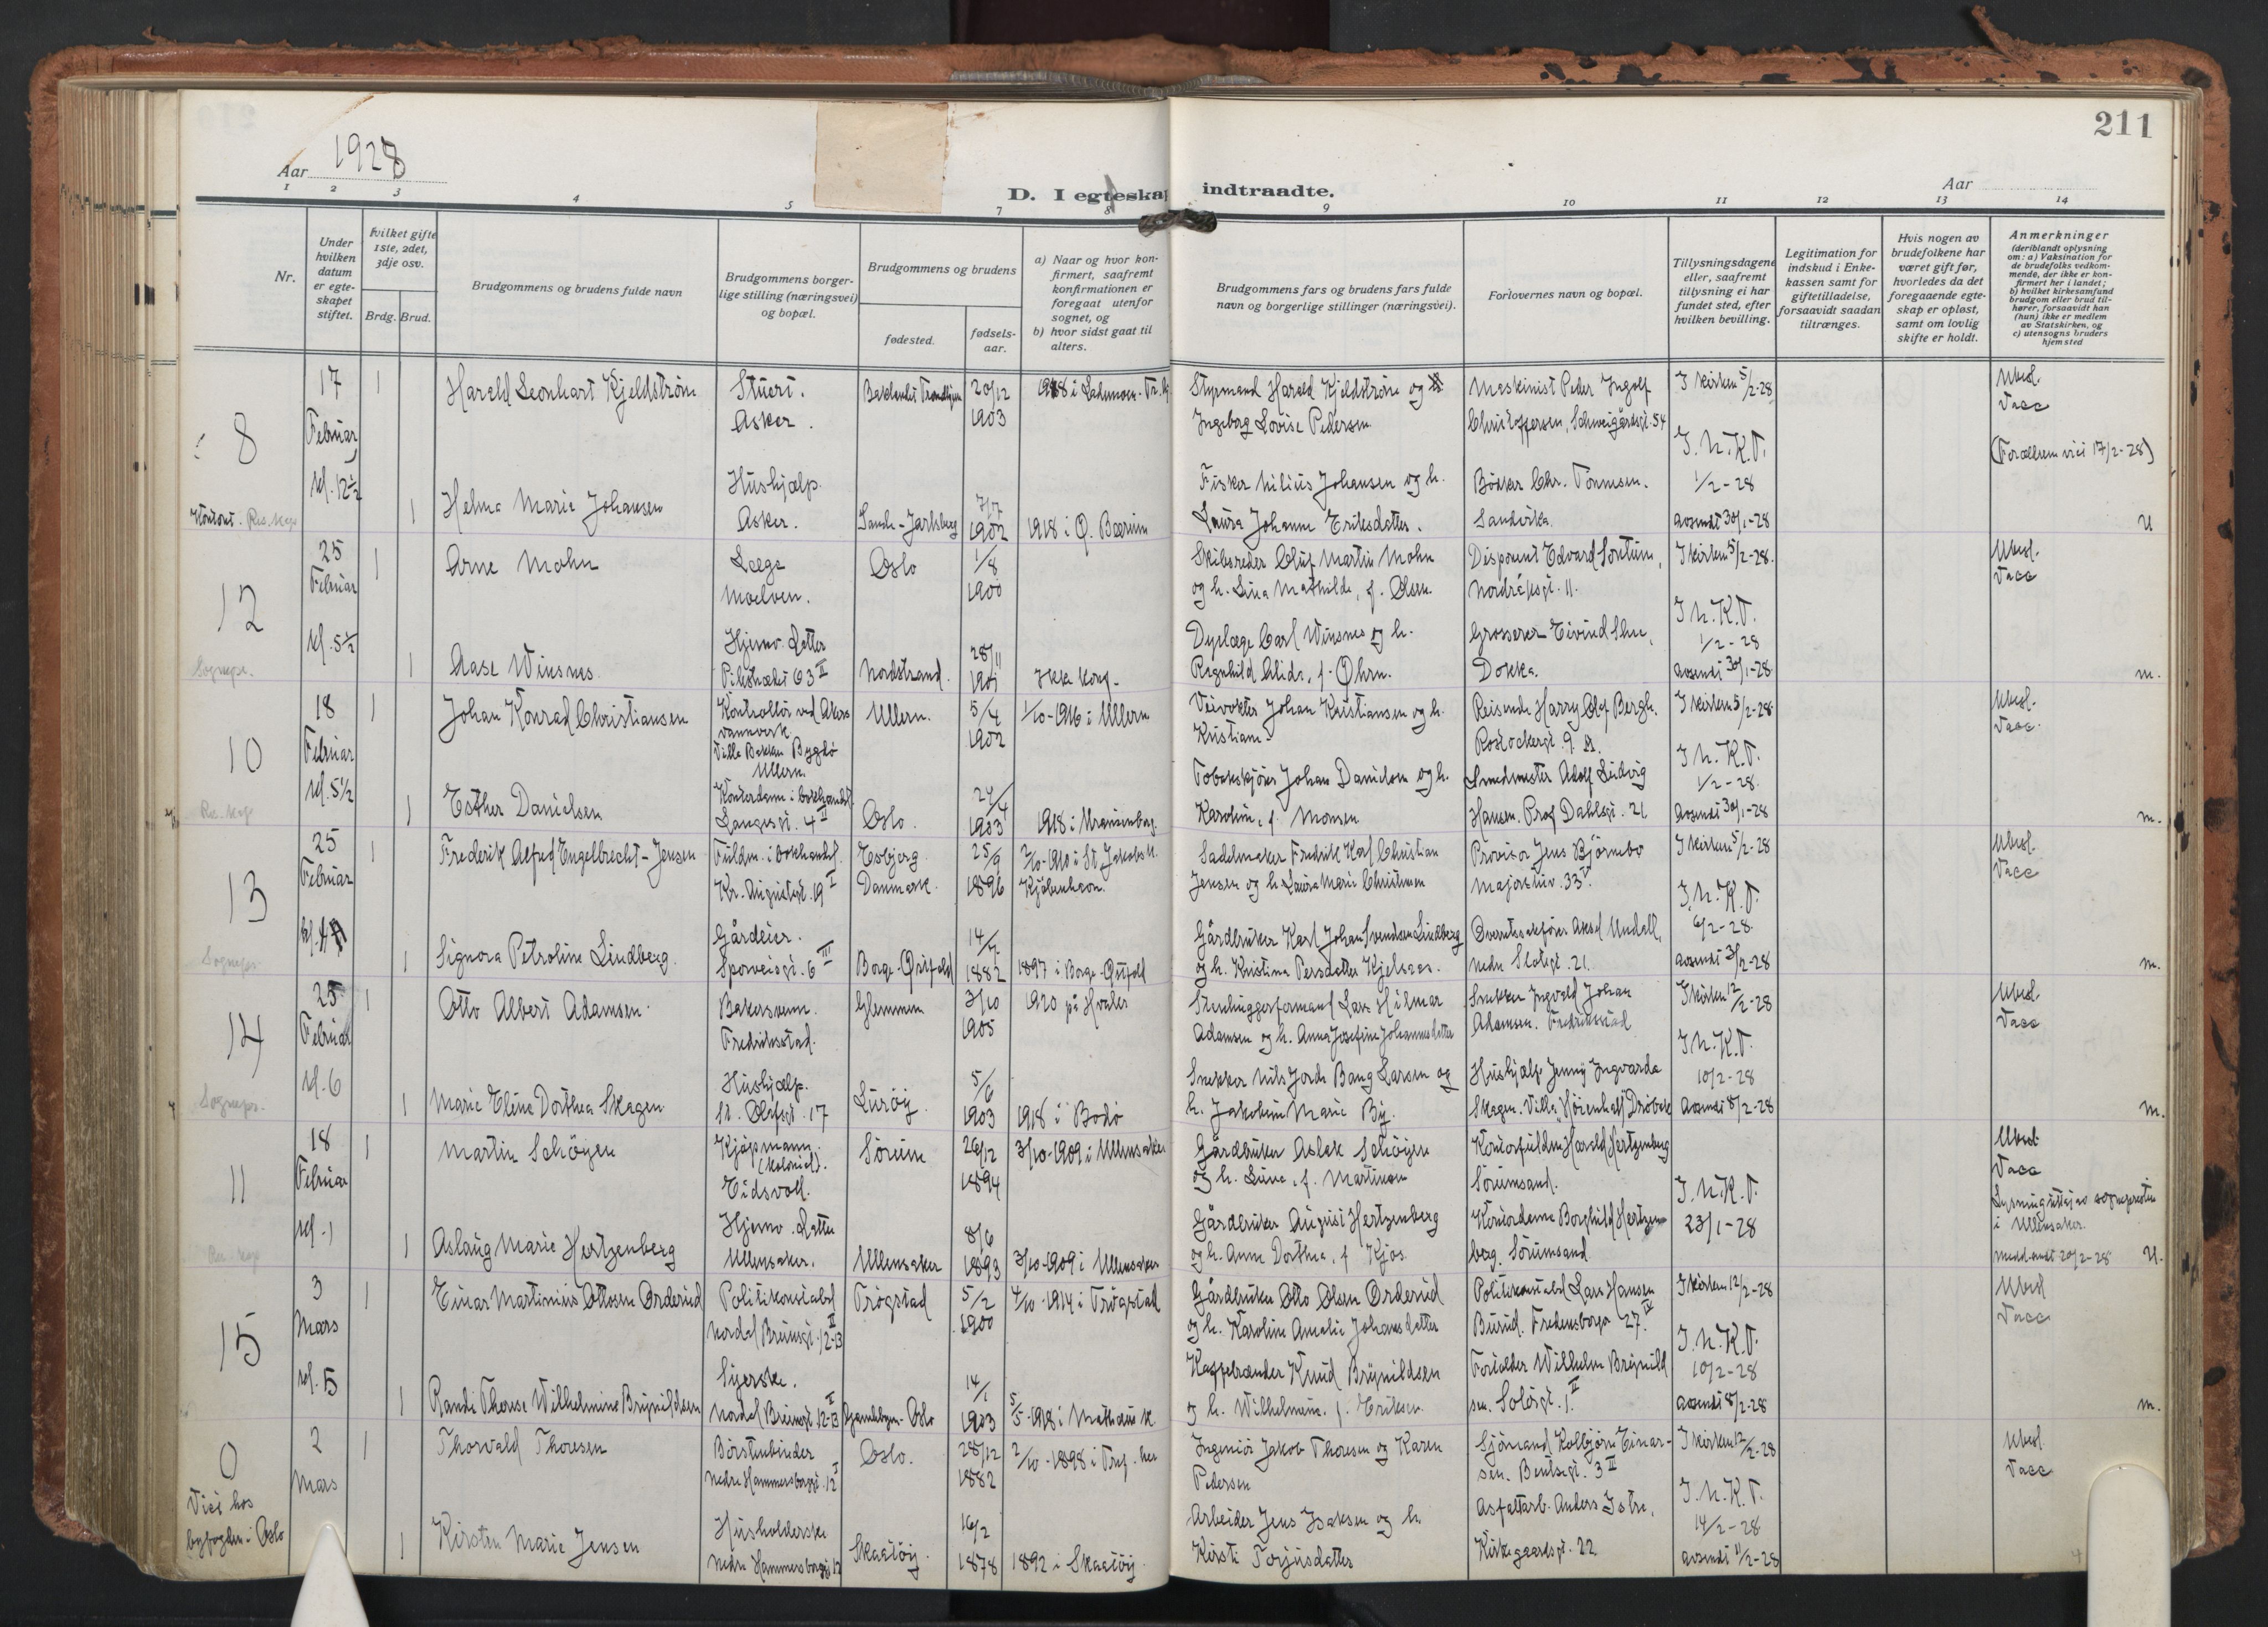 211
Aar 1928
Aar
D. I egteskap indtraadte.
1 2 3 4 5 7 8 9 10 11 12 13 14
Nr.
Under hvilken datum er egteskapet stiftet.
hvilket gifte 1ste, 2det, 3dje osv.
Brdg. Brud.
Brudgommens og brudens fulde navn
Brudgommens borgerlige stilling (næringsvei) og bopæl.
Brudgommens og brudens
fødested.
fødsels-aar.
a) Naar og hvor konfirmert, saafremt konfirmationen er foregaat utenfor sognet, og
b) hvor sidst gaat til alters.
Brudgommens fars og brudens fars fulde navn og borgerlige stillinger (næringsvei).
Forlovernes navn og bopæl.
Tillysningsdagene eller, saafremt tillysning ei har fundet sted, efter hvilken bevilling.
Legitimation for indskud i Enkekassen samt for giftetilladelse, forsaavidt saadan tiltrænges.
Hvis nogen av brudefolkene har været gift før, hvorledes da det foregaaende egteskap er opløst, samt om lovlig skifte er holdt.
Anmerkninger
(deriblandt oplysning om: a) Vaksination for de brudefolks vedkommende, der ikke er konfirmert her i landet;
b) hvilket kirkesamfund brudgom eller brud tilhører, forsaavidt han (hun) ikke er medlem av Statskirken, og
c) utensogns bruders hjemsted
8
17 Februar kl. 12½
1 Harald Leonhart Kjeldstrøm
Stuert. Asker.
Baklandet Trondhjem
20/12 1903
1918 i Lademoen Tr.hj
Styrmand Harald Kjeldstrøm og
Ingeborg Lovise Pedersen
Maskinist Peder Ingolf
Christoffersen, Schweigårdsgt. 54
I kirken 5/2-28
Ubesl.
Vacc
I.N.K.T.
(Forældrene viet 17/2-28)
1 Helma Marie Johansen
Hushjælp. Asker.
Sande-Jarlsberg
7/7 1902
1918 i Ø. Bærum
Fisker Nilius Johansen og h.
Laura Johanne Eriksdatter.
Bødker Chr. Tønnesen.
Sandvika
1/2-28
avsendt 30/1-28
Res. kap
U
12
25 Februar kl. 5½
1 Arne Mohn
Læge Moelven.
Oslo
1/8 1900
Skibsreder Oluf Martin Mohn
og h. Lina Mathilde, f. Olsen.
Disponent Edvard Sontum,
Nordråksgt. 11.
I kirken 5/2-28.
Ubesl.
Vacc
I.N.K.T.
1 Aase Winsnes
Hjemv. datter
Pilestrædet 63 II
Nordstrand.
28/11 1901
Ikke konf.
Dyrlæge Carl Winsnes og h.
Ragnhild Alida, f. Øhrn.
Grosserer Eivind Thue,
Dokka.
1/2-28
avsendt 30/1-28
Sognepr.
m.
10
18 Februar kl. 5½
1 Johan Konrad Christiansen
Kontrollør ved Akers vannverk
Villa Bakken Bygdø
Ullern
Ullern.
5/4 1902
1/10-1916 i Ullern
Veivokter Johan Kristiansen og h.
Kristiane
Reisende Harry Olaf Bergh.
Rostockergt. 9
I kirken 5/2-28
Ubesl.
Vacc.
I.N.K.T.
1 Esther Danielsen
Kontordame i bokhandel
Langesgt. 4 II
Oslo.
24/4 1903
1918 i Uranienborg.
Tobakskjører Johan Danielsen og h.
Karoline, f. Monsen
Smedmester Adolf Ludvig
Hansen. Prof. Dahlsgt. 21
1/2-28.
avsendt 30/1-28
Res. kap
m.
13
25 Februar
1 Frederik Alfred Engelbrecht-Jensen
Fuldm. i bokhandel.
Kr. Augustsgt. 19 I
Esbjerg Danmark.
25/9 1896
2/10-1910 i St. Jakobs k. Kjøbenhavn.
Sadelmaker Fredrik Karl Christian
Jensen og h. Laura Marie Christensen
Provisor Jens Bjørnebo
Majorstuv. 33 V.
I kirken 5/2-28
Ubesl.
Vacc
I.N.K.T.
1 Signora Petroline Lindberg
Gårdeier.
Sporveisgt. 6 III
Borge-Østfold
14/7 1882
1897 i Borge-Østfold
Gårdbruker Karl Johan Svendsen Lindberg
og h. Kristina Persdatter Kjelsaas.
Overretssakfører Aksel Undall,
nedre Slotsgt. 21.
6/2-28.
avsendt 3/2-28
Sognepr.
m.
14
25 Februar kl. 6
1 Otto Albert Adamsen
Bakersvenn. Fredrikstad.
Glemmen
3/10 1905
1920 på Hvaler
Stenhuggerformand Lars Hilmar
Adamsen og h. Anna Josefine Johannesdatter
Snekker Ingvald Johan
Adamsen. Fredrikstad
I kirken 12/2-28
Ubesl.
Vacc
I.N.K.T.
1 Marie Eline Dorthea Skagen
Hushjælp.
St. Olafsgt. 17
Lurøy.
5/6 1903
1918 i Bodø
Snekker Nils Jorde Bang Larsen og
h. Jakobine Marie By.
Hushjælp Jenny Ingvarda
Skagen. Villa Høienhall Drøbak
10/2-28
avsendt 8/2-28
Sognepr.
m.
11
18 Februar kl. 1
1 Martin Schøyen
Kjøpmann. (kolonial). Eidsvoll.
Sørum
26/12 1894
3/10-1909 i Ullensaker
Gårdbruker Aslak Schøyen
og h. Lina, f. Martinsen
Kontorfuldm. Harald Hertzenberg
Sørumsand.
Ubesl.
Vacc
I.N.K.T.
1 Aslaug Marie Hertzenberg
Hjemv. datter
Ullensaker.
Ullensaker
8/6 1893
3/10-1909 i Ullensaker
Gårdbruker August Hertzenberg
og h. Anne Dorthea, f. Kjos
Kontordame Borghild Hertzenberg, Sørumsand
23/1-28
Lysning utført av sognepresten
i Ullensaker.
medd. sendt 20/2-28
Res. kap
U.
15
3 Mars kl. 5
1 Einar Martinius Ottosen Orderud
Politikonstabel
Nordal Brunsgt. 12-13 II
Trøgstad
5/2 1900
4/10-1914 i Trøgstad
Gårdbruker Otto Olsen Orderud
og h. Karoline Amalie Johansdatter
Politikonstabel Lars Hansen
Burud. Fredensborgv. 27. IV
I kirken 12/2-28
Ubesl
Vacc
I.N.K.T.
1 Randi Therese Wilhelmine Brynildsen
Syerske.
Nordal Brunsgt. 12-13 II
Gamlebyen-Oslo
14/1 1903
5/5-1918 i Mathæus k.
Kaffebrænder Knud Brynildsen
og h. Wilhelmine, f. Eriksen
Forvalter Wilhelm Brynild
sen. Solørgt. 1. II
10/2-28
avsendt 8/2-28
m.
0
2 Mars
1 Thorvald Thoresen
Børstenbinder
Nedre Hammersborggt. 12 I
Oslo.
28/12 1882
2/10-1898 i Tref. her
Ingeniør Jakob Thoresen og Karen
Pedersen
Sjømand Kolbjørn Einar-
sen. Bentsegt. 3 III
I kirken 12/2-28
Ubesl.
Vacc
I.N.K.T.
Viet hos
byfogden i Oslo
1 Kirsten Marie Jensen
Husholderske
Nedre Hammersborggt. 12
Skaatøy.
16/2 1878
1892 i Skaatøy
Arbeider Jens Isaksen og h.
Kirsti Torjusdatter
Asfaltarb. Anders Istre,
Kirkegaardsgt. 22
14/2-28
avsendt 11/2-28